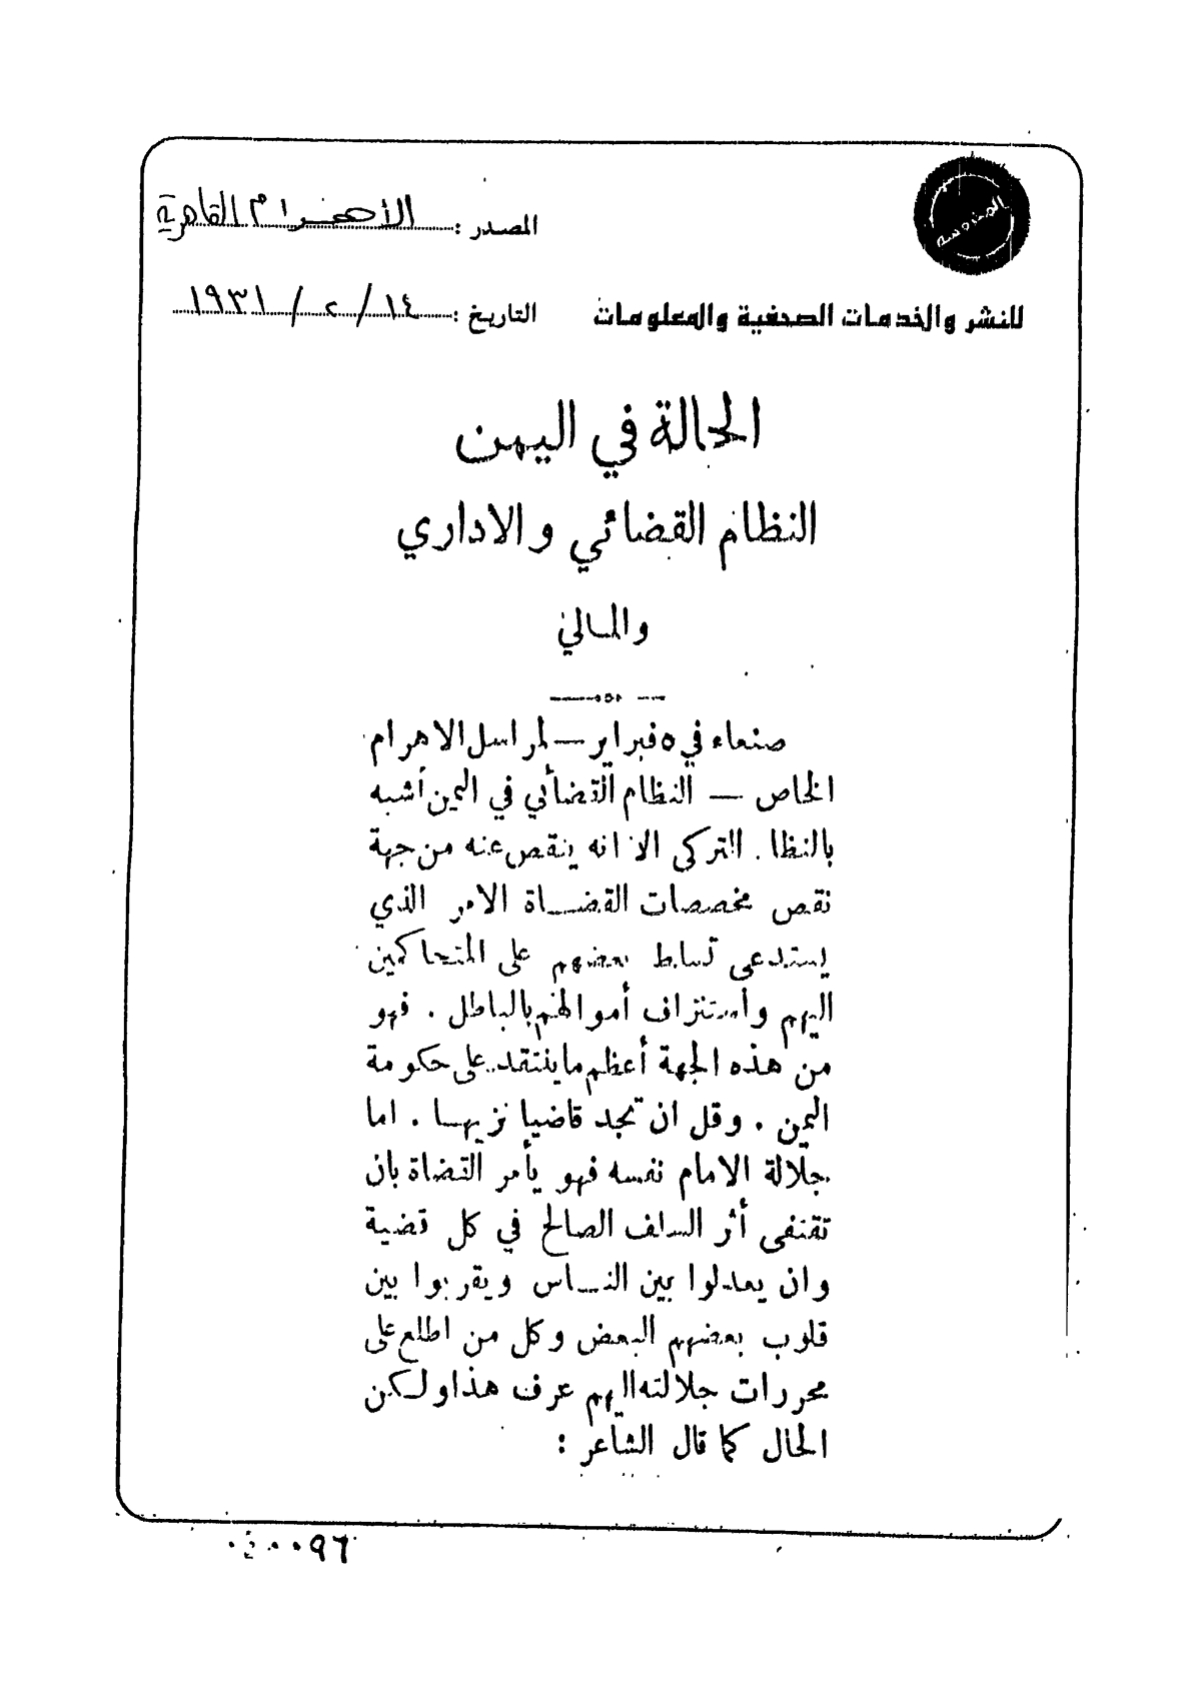 المحروسة
المصدر : الأهرام القاهرية
للنشر والخدمات الصحفية والمعلومات
التاريخ : ١٤ / ٢ / ١٩٣١
الحالة في اليمن
النظام القضائي والاداري
والمالي
صنعاء في ٥ فبراير — لمراسل الاهرام
الخاص — النظام القضائي في اليمن أشبه
بالنظا. التركي الا انه ينقص عنه من جهة
نقص مخصصات القضاة الامر الذي
يستدعي تسلط بعضهم على المتحاكمين
اليهم وأستنزاف أموالهم بالباطل . فهو
من هذه الجهة أعظم ما ينتقد على حكومة
اليمن . وقل ان تجد قاضيا نزيها . اما
جلالة الامام نفسه فهو يأمر القضاة بان
تقتفى أثر السلف الصالح في كل قضية
وان يعدلوا بين الناس ويقربوا بين
قلوب بعضهم البعض وكل من اطلع على
محررات جلالته اليهم عرف هذا ولكن
الحال كما قال الشاعر :